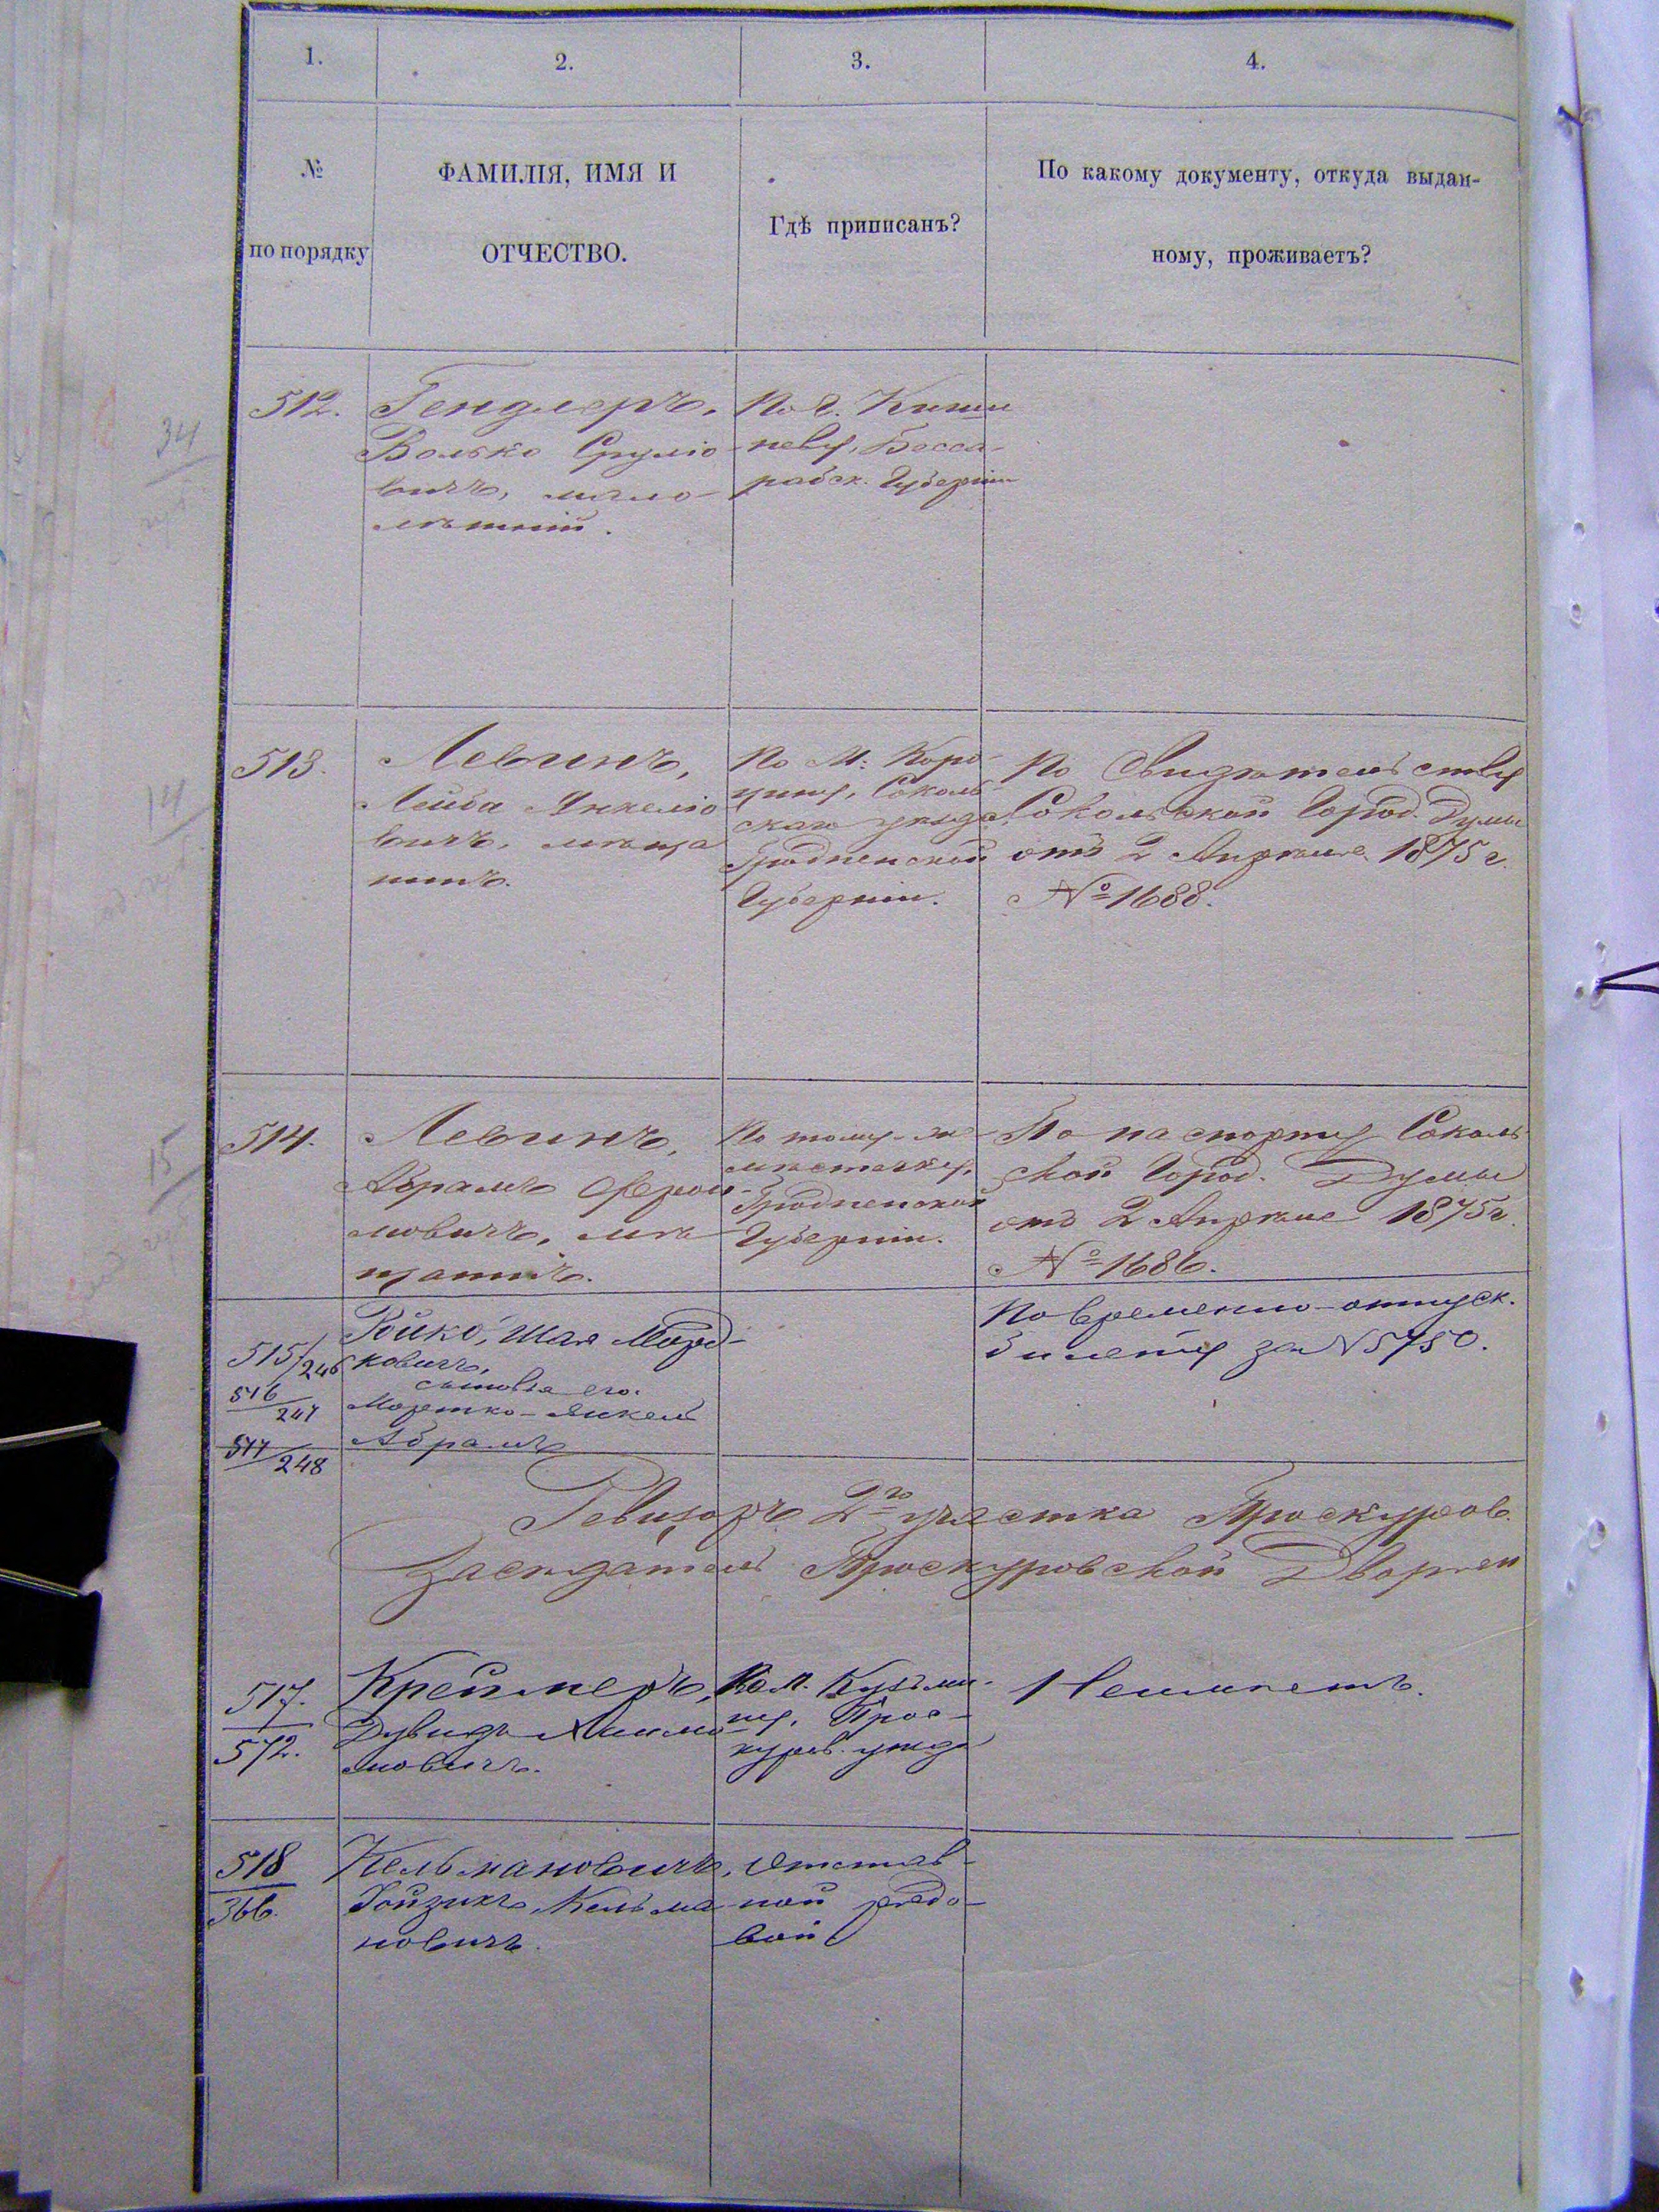 1.
2.
3.
4.
№
по порядку
ФАМИЛІЯ, ИМЯ И
ОТЧЕСТВО.
Гдѣ приписанъ?
По какому документу, откуда выдан-
ному, проживаетъ?
34
512.
Гендлеръ,
Волько Сруліо
вичъ, мало-
лѣтній.
По г. Киши
неву, Бесса-
рабск. Губерніи
14
513.
Левинъ,
Лейба Янкеліо
вичъ, мѣща
нинъ.
По М: Коро-
цину, Соколь-
скаго уѣзда,
Гродненской
Губерніи.
По Свидѣтельству
Сокольской Город. Думы
отъ 2 Апрѣля 1875 г.
№ 1688.
15
514.
Левинъ,
Абрамъ
мовичъ, мѣ
щанинъ.
По тому-же
мѣстечку,
Гродненской
Губерніи.
По паспорту Соколь
ской Город. Думы
отъ 2 Апрѣля 1875 г.
№ 1686.
515/246
516/247
517/248
Ройко, Шая Морд-
ковичъ,
сыновья его.
Мортко-Янкель
Абрамъ
По временно-отпуск.
билету за N 5750.
Ревизоръ 2го участка Проскуров.
Засѣдатель Проскуровской Дворян
517.
572.
Креймеръ,
Дувидъ
мовичъ.
По м. Кузьми-
ну, Прос-
куров. уѣзда
Неимѣетъ.
518
366.
Кельмановичъ,
Гойзикъ Кельма
новичъ.
Отстав-
ной рядо-
вой